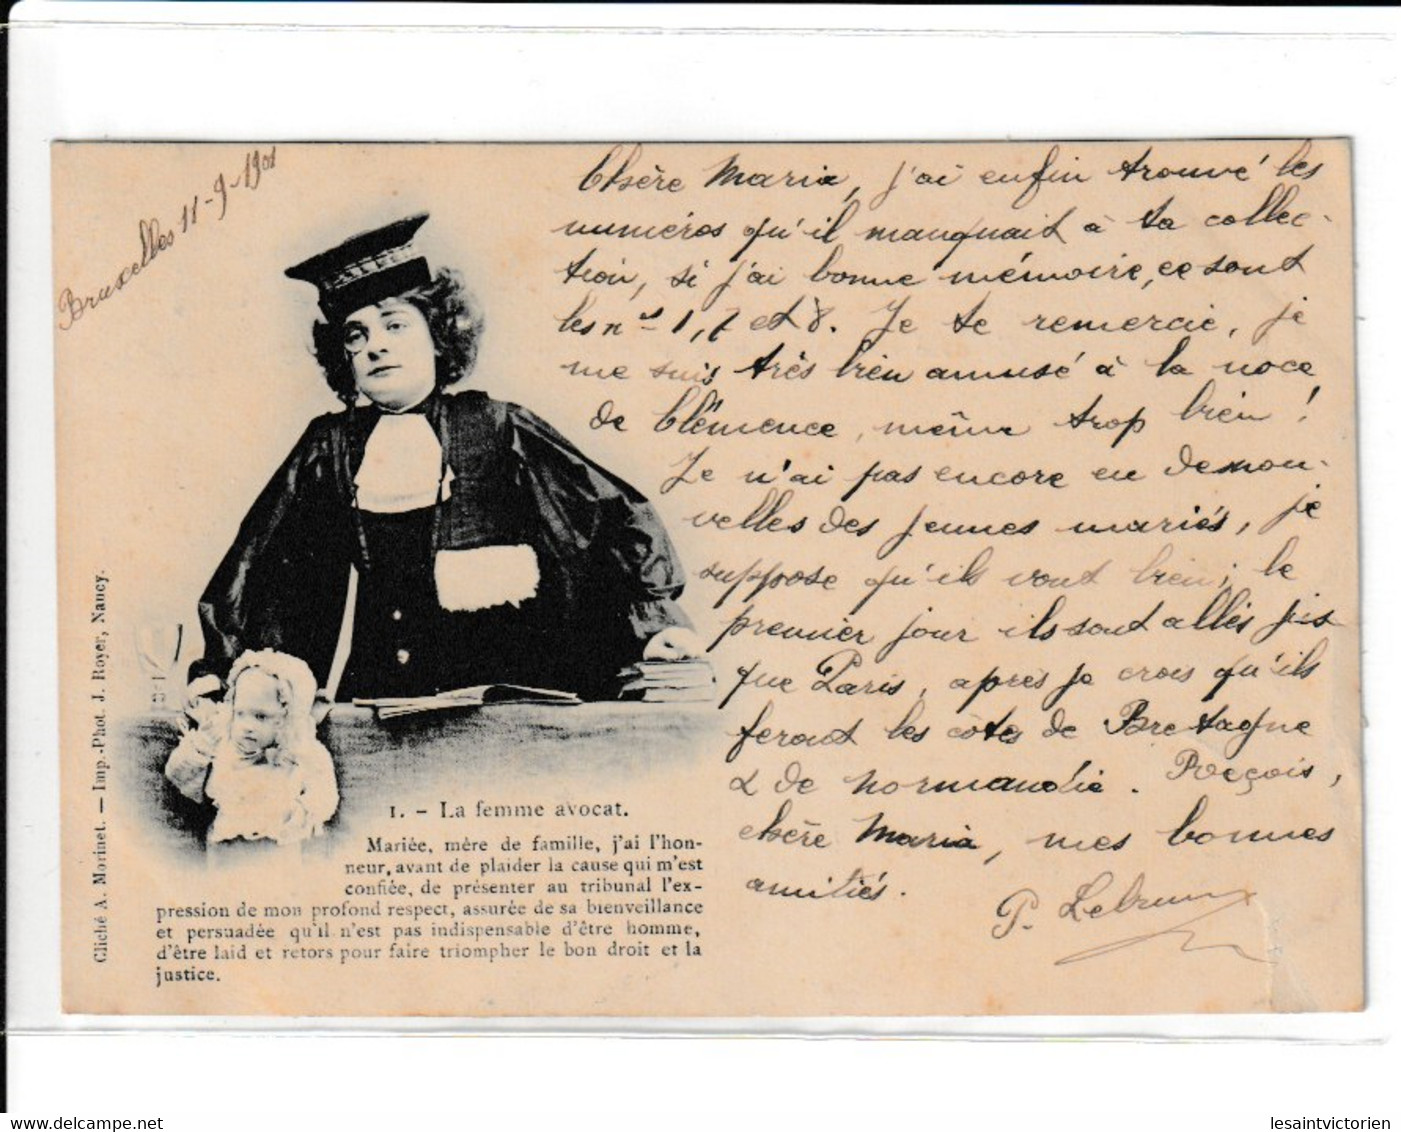 Bruxelles 11-9-1901
Chère Maria, j'ai enfin trouvé les
numéros qu'il manquait à ta collec-
tion, si j'ai bonne mémoire, ce sont
les nos 1, 7 et 8. Je te remercie, je
me suis très bien amusé à la noce
de Clémence, même trop bien !
Je n'ai pas encore eu de nou-
velles des jeunes mariés, je
suppose qu'ils vont bien; le
premier jour ils sont allés jus
que Paris, après je crois qu'ils
feront les côtes de Bretagne
& de Normandie. Reçois,
chère Maria, mes bonnes
amitiés.
P. Lebrun
1. - La femme avocat.
Mariée, mère de famille, j'ai l'hon-
neur, avant de plaider la cause qui m'est
confiée, de présenter au tribunal l'ex-
pression de mon profond respect, assurée de sa bienveillance
et persuadée qu'il n'est pas indispensable d'être homme,
d'être laid et retors pour faire triompher le bon droit et la
justice.
Cliché A. Morinet. — Imp.-Phot. J. Royer, Nancy.
lesaintvictorien